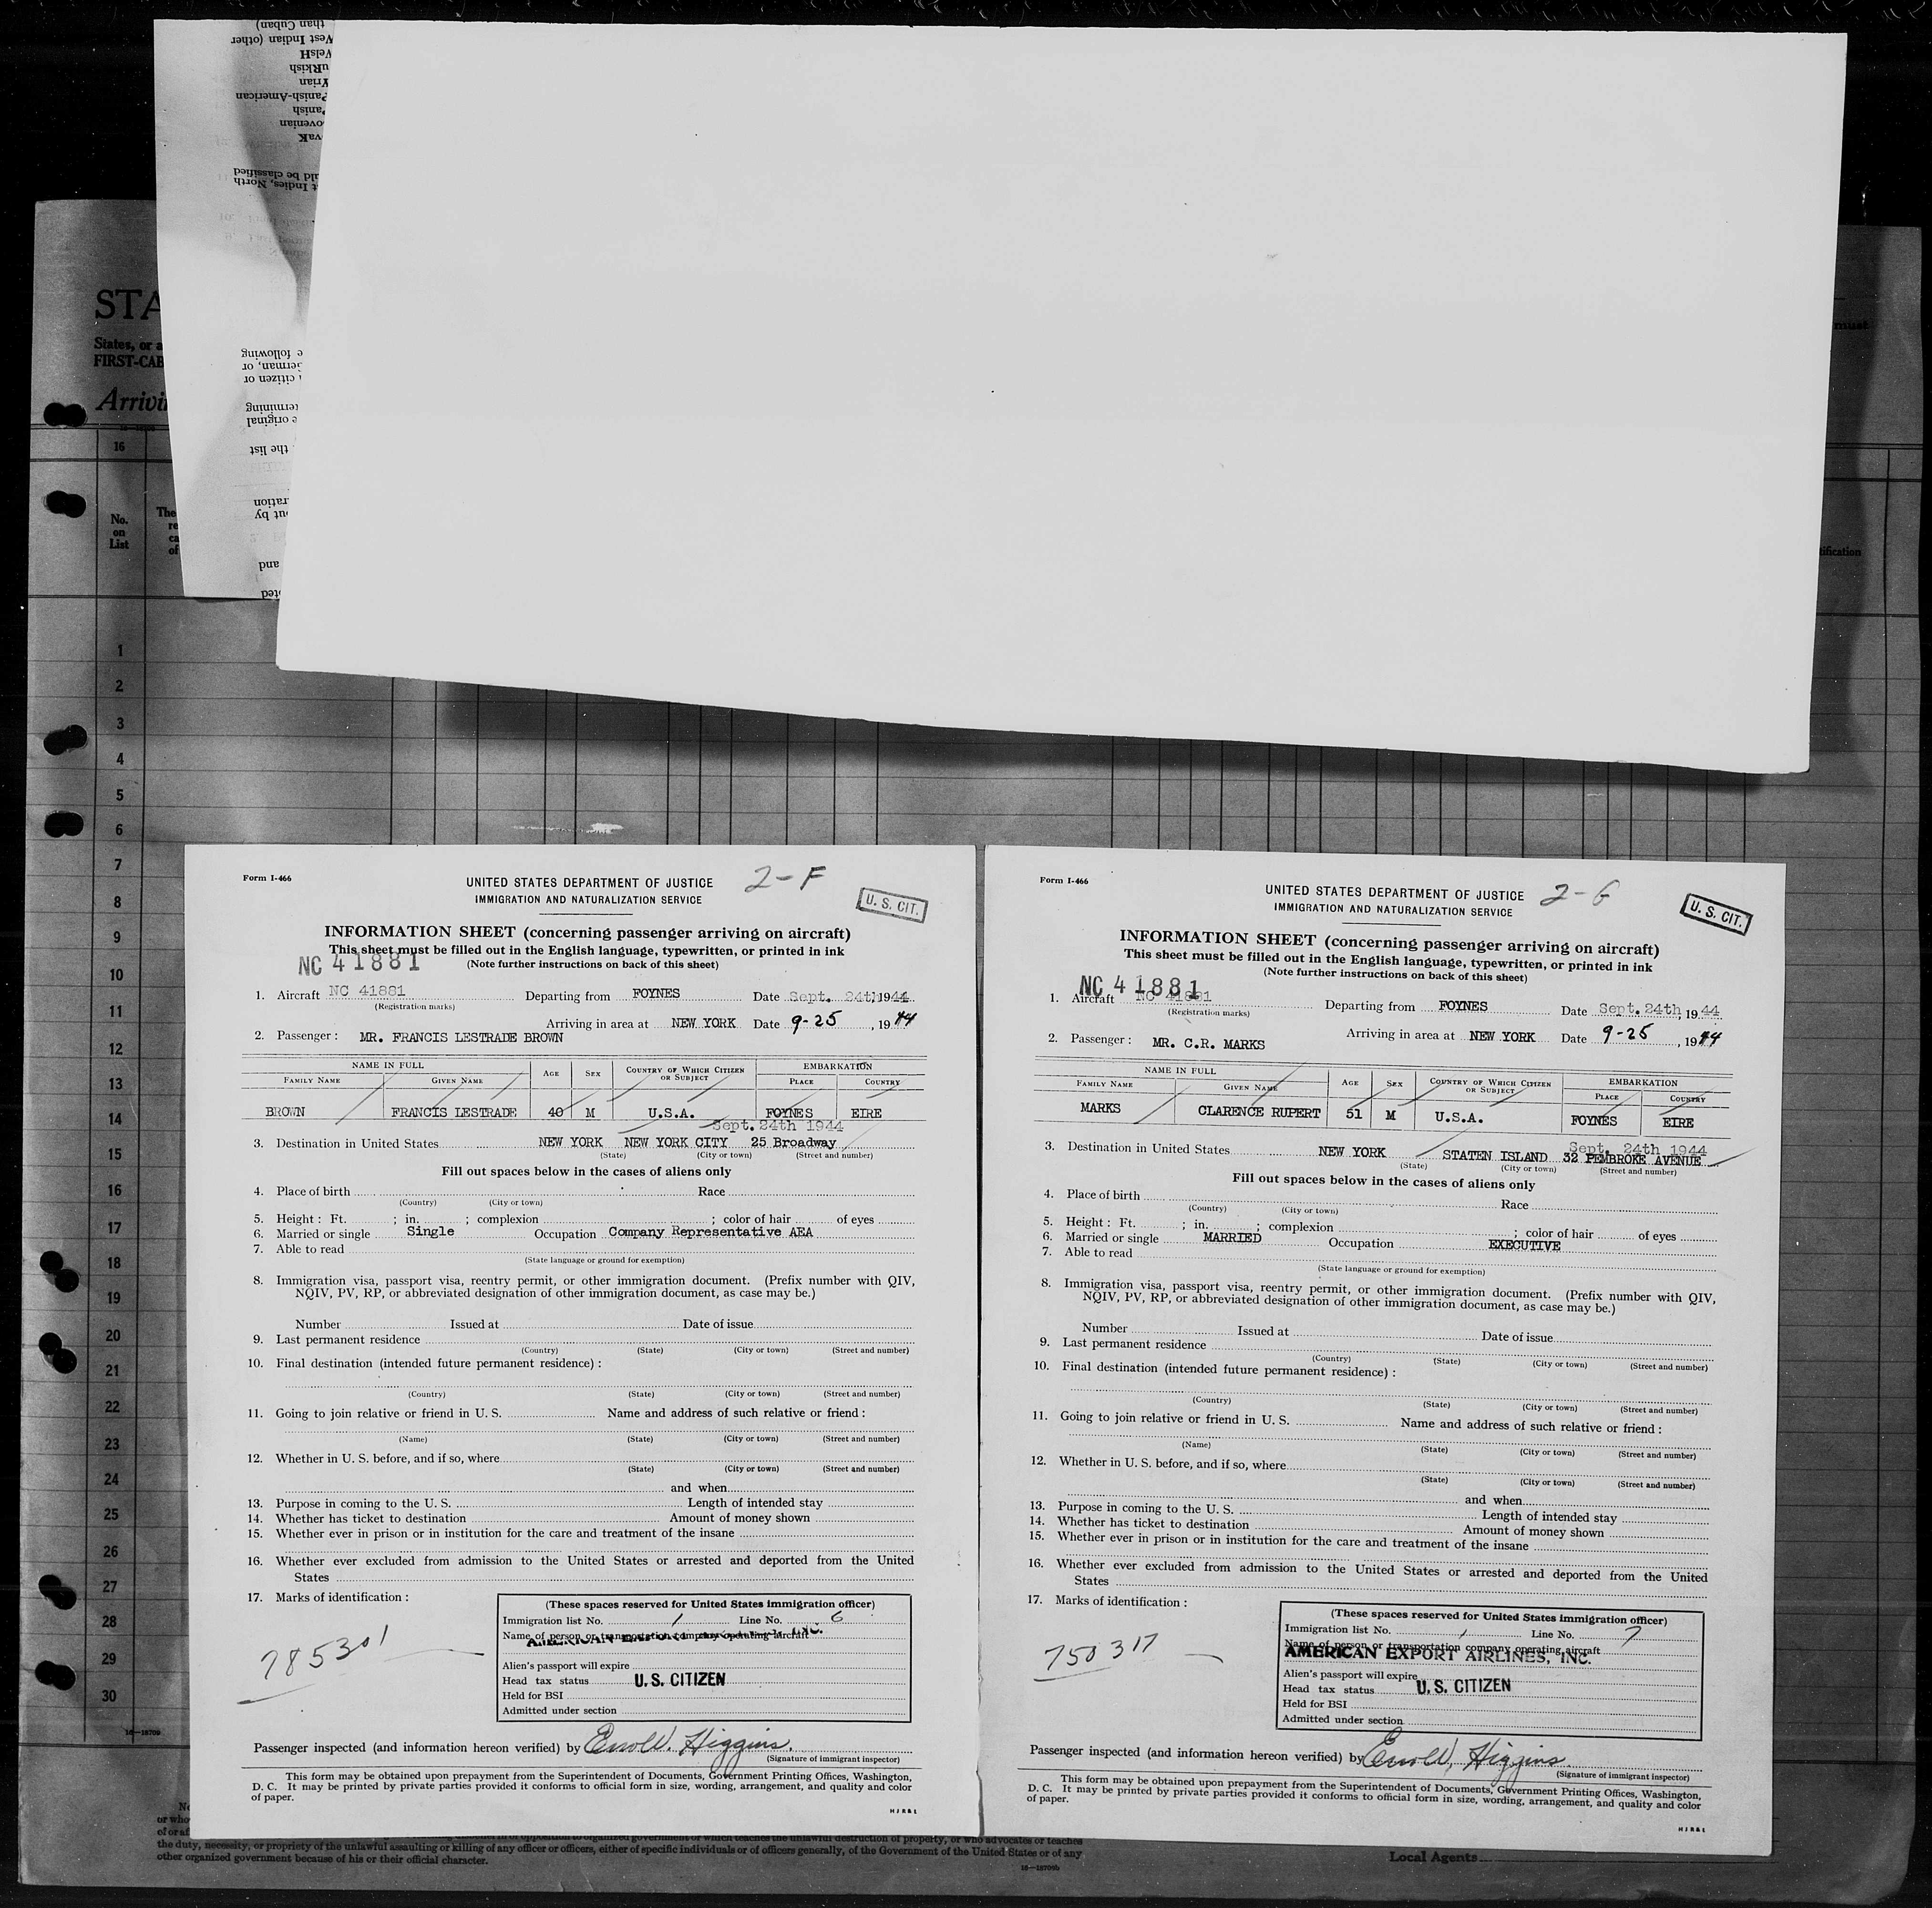 than Cuban)
West Indian (other
STA
States, or a
FIRST-CAB
Arrivi
must
16
No.
on
List
The
re
ca
of
tification
1
2
3
4
5
6
7
8
9
10
11
12
13
14
15
16
17
18
19
20
21
22
23
24
25
26
27
28
29
30
Form I-466
2-F
UNITED STATES DEPARTMENT OF JUSTICE
IMMIGRATION AND NATURALIZATION SERVICE
U. S. CIT.
INFORMATION SHEET (concerning passenger arriving on aircraft)
This sheet must be filled out in the English language, typewritten, or printed in ink
(Note further instructions on back of this sheet)
NC 41881
1. Aircraft NC 41881 Departing from FOYNES Date Sept. 24th, 1944
(Registration marks)
Arriving in area at NEW YORK Date 9-25, 1944
2. Passenger: MR. FRANCIS LESTRADE BROWN
NAME IN FULL AGE SEX COUNTRY OF WHICH CITIZEN OR SUBJECT EMBARKATION
FAMILY NAME GIVEN NAME PLACE COUNTRY
BROWN FRANCIS LESTRADE 40 M U.S.A. FOYNES EIRE
Sept. 24th 1944
3. Destination in United States NEW YORK NEW YORK CITY 25 Broadway
(State) (City or town) (Street and number)
Fill out spaces below in the cases of aliens only
4. Place of birth Race
(Country) (City or town)
5. Height: Ft. ; in. ; complexion ; color of hair of eyes
6. Married or single Single Occupation Company Representative AEA
7. Able to read
(State language or ground for exemption)
8. Immigration visa, passport visa, reentry permit, or other immigration document. (Prefix number with QIV,
NQIV, PV, RP, or abbreviated designation of other immigration document, as case may be.)
Number Issued at Date of issue
9. Last permanent residence
(Country) (State) (City or town) (Street and number)
10. Final destination (intended future permanent residence):
(Country) (State) (City or town) (Street and number)
11. Going to join relative or friend in U. S. Name and address of such relative or friend:
(Name) (State) (City or town) (Street and number)
12. Whether in U. S. before, and if so, where
(State) (City or town) (Street and number)
and when
13. Purpose in coming to the U. S. Length of intended stay
14. Whether has ticket to destination Amount of money shown
15. Whether ever in prison or in institution for the care and treatment of the insane
16. Whether ever excluded from admission to the United States or arrested and deported from the United
States
17. Marks of identification:
785301
(These spaces reserved for United States immigration officer)
Immigration list No. 1 Line No. 6
Name of person or transportation company operating aircraft
Alien's passport will expire
Head tax status U. S. CITIZEN
Held for BSI
Admitted under section
Passenger inspected (and information hereon verified) by Errol W. Higgins.
(Signature of immigrant inspector)
This form may be obtained upon prepayment from the Superintendent of Documents, Government Printing Offices, Washington,
D. C. It may be printed by private parties provided it conforms to official form in size, wording, arrangement, and quality and color
of paper.
Form I-466
2-G
UNITED STATES DEPARTMENT OF JUSTICE
IMMIGRATION AND NATURALIZATION SERVICE
U. S. CIT.
INFORMATION SHEET (concerning passenger arriving on aircraft)
This sheet must be filled out in the English language, typewritten, or printed in ink
(Note further instructions on back of this sheet)
NC 41881
1. Aircraft NC 41881 Departing from FOYNES Date Sept. 24th, 1944
(Registration marks)
Arriving in area at NEW YORK Date 9-25, 1944
2. Passenger: MR. C.R. MARKS
NAME IN FULL AGE SEX COUNTRY OF WHICH CITIZEN OR SUBJECT EMBARKATION
FAMILY NAME GIVEN NAME PLACE COUNTRY
MARKS CLARENCE RUPERT 51 M U.S.A. FOYNES EIRE
Sept. 24th 1944
3. Destination in United States NEW YORK STATEN ISLAND 32 PEMBROKE AVENUE
(State) (City or town) (Street and number)
Fill out spaces below in the cases of aliens only
4. Place of birth Race
(Country) (City or town)
5. Height: Ft. ; in. ; complexion ; color of hair of eyes
6. Married or single MARRIED Occupation EXECUTIVE
7. Able to read
(State language or ground for exemption)
8. Immigration visa, passport visa, reentry permit, or other immigration document. (Prefix number with QIV,
NQIV, PV, RP, or abbreviated designation of other immigration document, as case may be.)
Number Issued at Date of issue
9. Last permanent residence
(Country) (State) (City or town) (Street and number)
10. Final destination (intended future permanent residence):
(Country) (State) (City or town) (Street and number)
11. Going to join relative or friend in U. S. Name and address of such relative or friend:
(Name) (State) (City or town) (Street and number)
12. Whether in U. S. before, and if so, where
(State) (City or town) (Street and number)
and when
13. Purpose in coming to the U. S. Length of intended stay
14. Whether has ticket to destination Amount of money shown
15. Whether ever in prison or in institution for the care and treatment of the insane
16. Whether ever excluded from admission to the United States or arrested and deported from the United
States
17. Marks of identification:
750317
(These spaces reserved for United States immigration officer)
Immigration list No. 1 Line No. 7
Name of person or transportation company operating aircraft
AMERICAN EXPORT AIRLINES, INC.
Alien's passport will expire
Head tax status U. S. CITIZEN
Held for BSI
Admitted under section
Passenger inspected (and information hereon verified) by Errol W. Higgins
(Signature of immigrant inspector)
This form may be obtained upon prepayment from the Superintendent of Documents, Government Printing Offices, Washington,
D. C. It may be printed by private parties provided it conforms to official form in size, wording, arrangement, and quality and color
of paper.
the duty, necessity, or propriety of the unlawful assaulting or killing of any officer or officers, either of specific individuals or of officers generally, of the Government of the United States or of any
other organized government because of his or their official character.
Local Agents